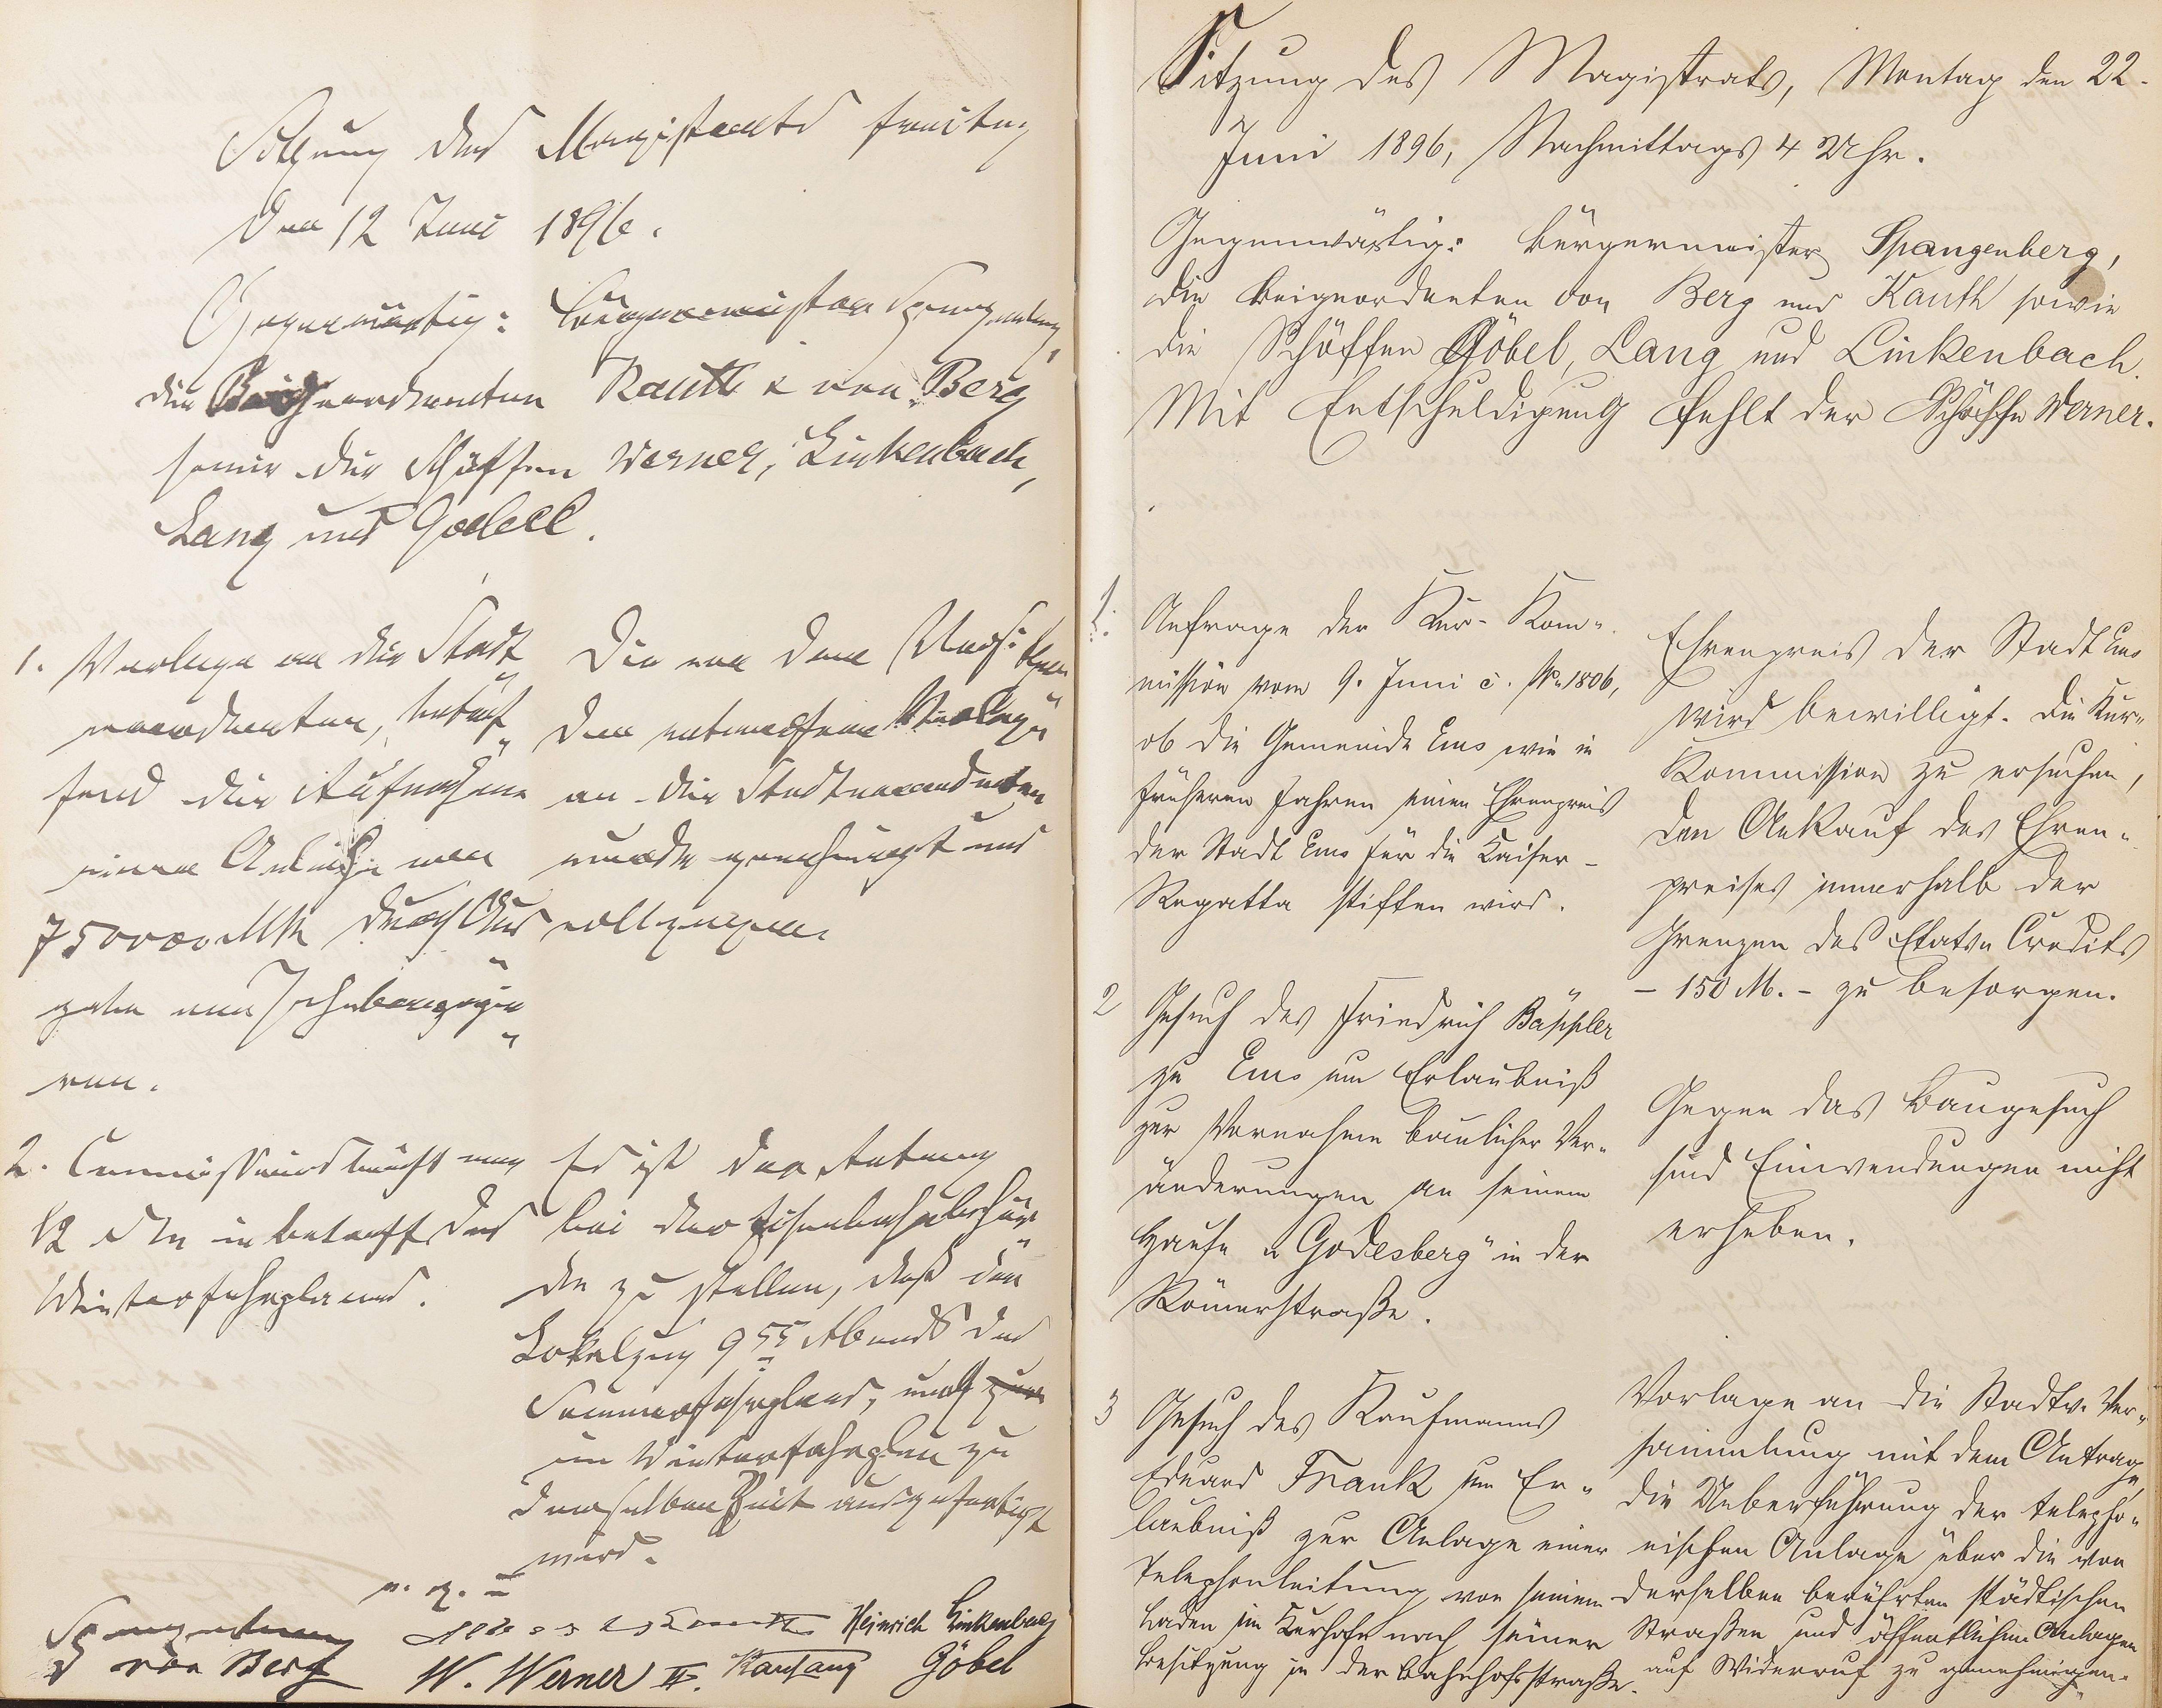 Sitzung des Magistrats Freitag
den 12 Juni 1896.
Gegenwärtig: Bürgermeister Spangenberg,
die Beigeordneten Kauth & von Berg
sowie die Schöffen Werner, Linkenbach,
Lang und Goebell.
1. Vorlage an die Stadt
verordneten, betref„
fend die Aufnahme
einer Anleihe von
750000 Mk durch Aus
gabe von Inhaberpapie„
ren.
Die von dem Vorsitzen
den entworfene Vorlage
an die Stadtverordneten
wurde genehmigt und
vollzogen.
2. Commissionsbericht vom
12 d Mts in betreff des
Winterfahrplanes.
Es ist der Antrag
bei der Eisenbahnbehör„
de zu stellen, daß der
Lokalzug 9 55 Abends des
Sommerfahrplans, auch
im Winterfahrplan zu
derselben Zeit ausgefertigt
wird.
v. g. u.
Spangenberg
von Berg
Heinrich Linkenbach
W. Werner II. Göbel
Sitzung des Magistrats, Montag den 22.
Juni 1896, Nachmittags 4 Uhr.
Gegenwärtig: Bürgermeister Spangenberg,
die Beigeordneten von Berg und Kauth sowie
die Schöffen Göbel, Lang und Linkenbach.
Mit Entschuldigung fehlt der Schöffe Werner.
1. Anfrage der Kur-Kom„
mission vom 9. Juni c. No 1806,
ob die Gemeinde Ems wie in
früheren Jahren einen Ehrenpreis
der Stadt Ems für die Kaiser-
Regatta stiften wird.
Ehrenpreis der Stadt Ems
wird bewilligt. Die Kur„
Kommission zu ersuchen,
den Ankauf des Ehren„
preises innerhalb der
Grenzen des Etats„Credits
– 150 M. – zu besorgen.
2 Gesuch des Friedrich Bäppler
zu Ems um Erlaubniß
zur Vornahme baulicher Ver„
änderungen an seinem
Hause „Godesberg" in der
Römerstraße.
Gegen das Baugesuch
sind Einwendungen nicht
erheben.
3 Gesuch des Kaufmanns
Eduard Frank um Er„
laubniß zur Anlage einer
Telephonleitung von seinem
Laden im Kurhofe nach seiner
Besitzung in der Bahnhofsstraße.
Vorlage an die Stadtv. Ver„
sammlung mit dem Antrage,
die Ueberführung der telepho„
nischen Anlage über die von
derselben berührten städtischen
Straßen und öffentlichen Anlagen
auf Widerruf zu genehmigen.